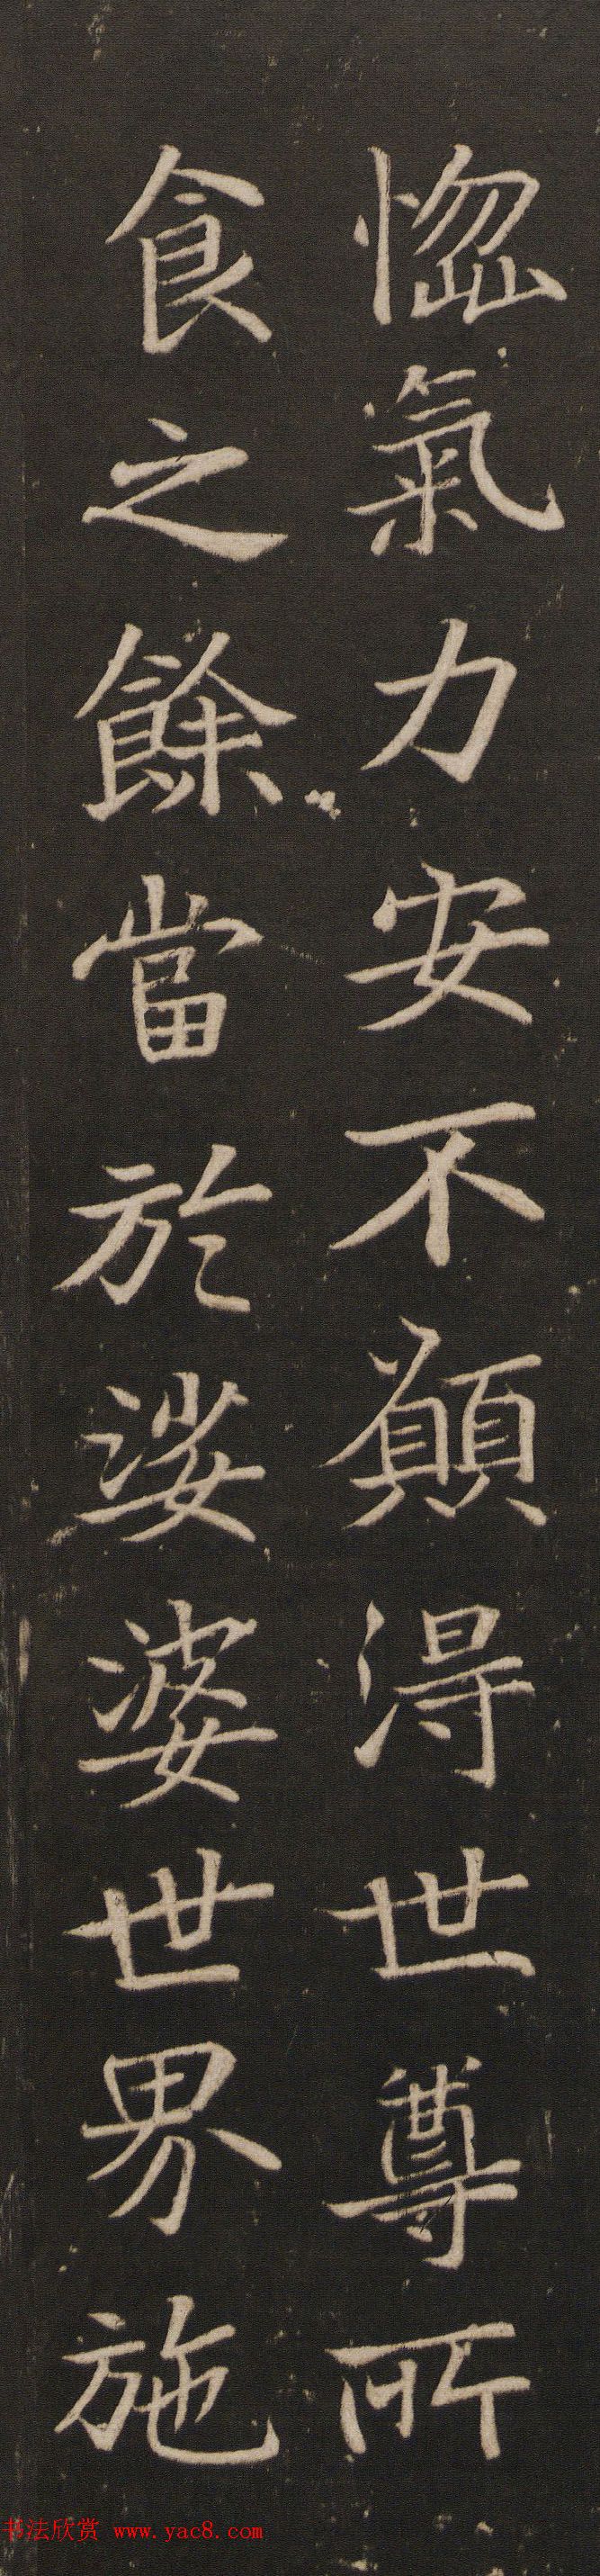 惱氣力安不願得世尊所
食之餘當於娑婆世界施
书法欣赏 www.yac8.com